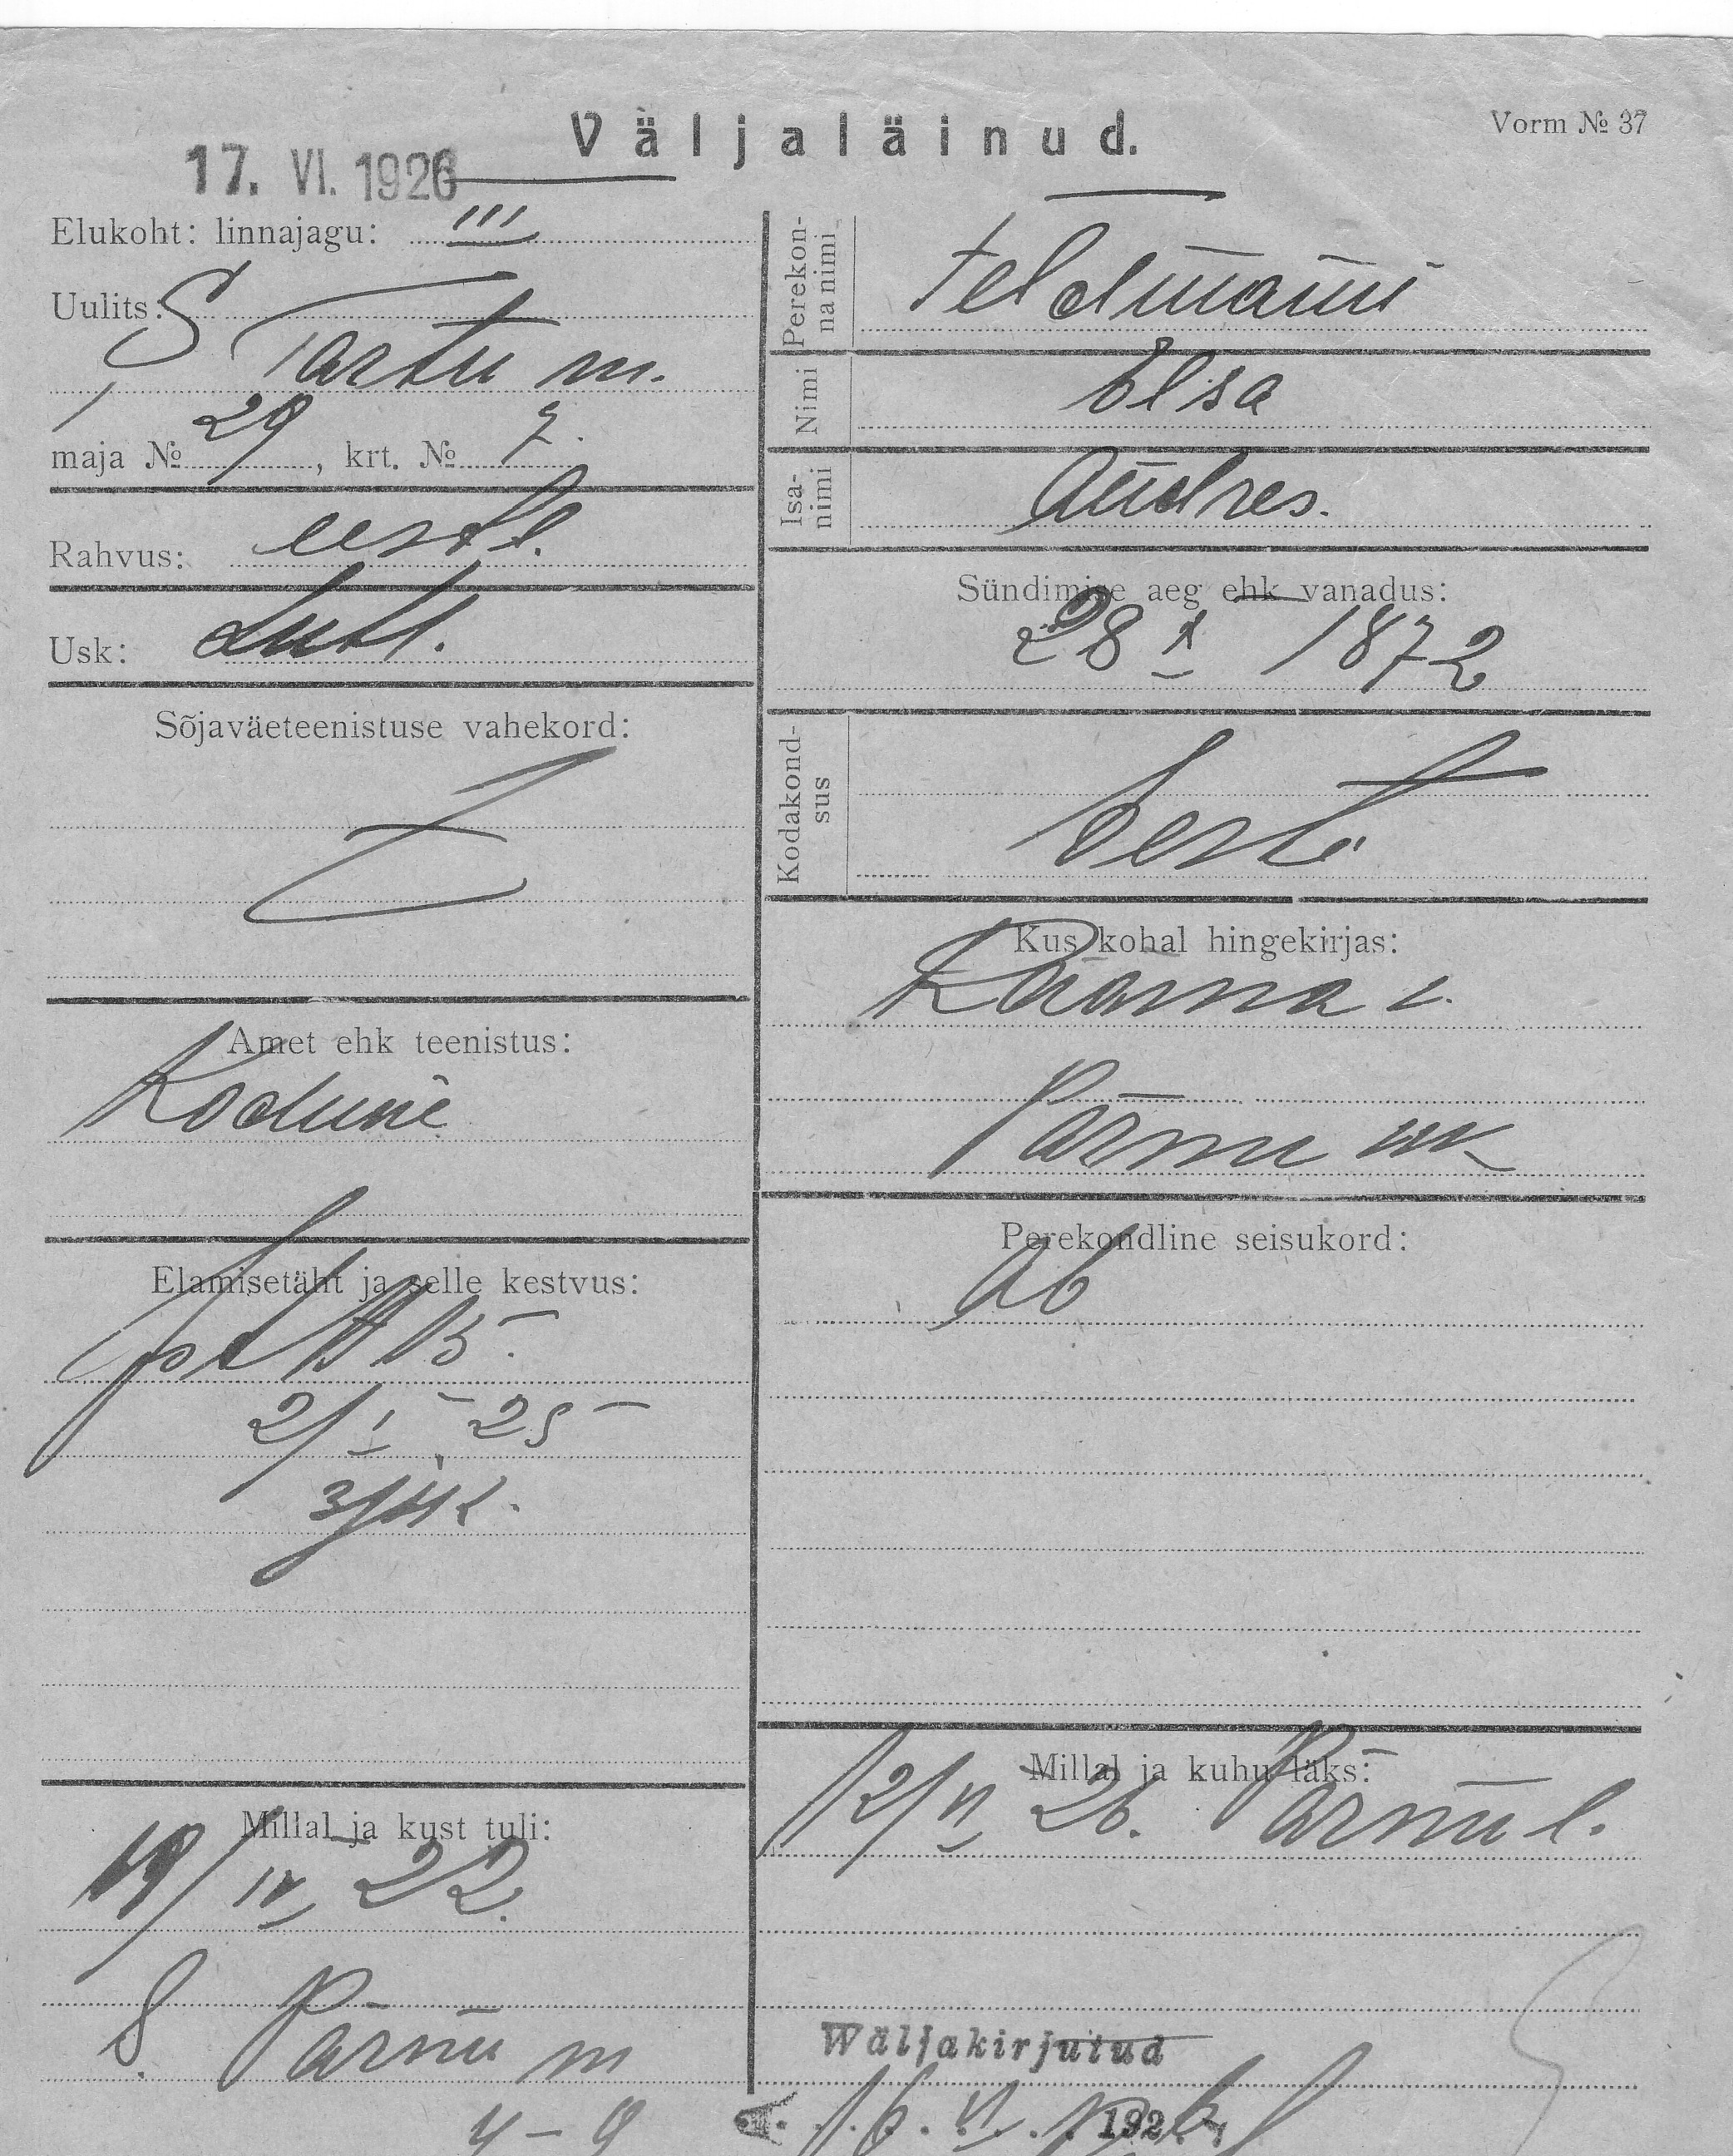 Väljaläinud.
Vorm № 37
17. VI. 1926
Elukoht: linnajagu: III
Uulits: S Tartu m.
maja № 29, krt. № 7.
Rahvus: eestl.
Usk: Luth.
Sõjaväeteenistuse vahekord:
Amet ehk teenistus:
Kodune
Elamisetäht ja selle kestvus:
2/I 25
Millal ja kust tuli:
19/IV 22.
S. Pärnu m
4-9
Perekonna nimi
Feldmann
Nimi
Elsa
Isanimi
Andres.
Sündimise aeg ehk vanadus:
28 X 1872
Kodakondsus
Eesti
Kus kohal hingekirjas:
v.
Pärnu m
Perekondline seisukord:
Ab
Millal ja kuhu läks:
12/VI 26. Pärnu l.
Wäljakirjutud
16. VI. 1926